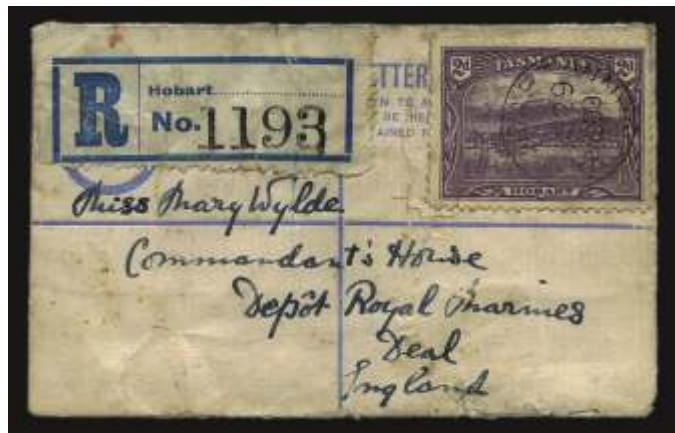 R
Hobart
No. 1193
ETTER
EN TO A
BE HE
AINED
2d TASMANIA 2d
HOBART
Miss Mary Wylde
Commandant's House
Depôt Royal Marines
Deal
England